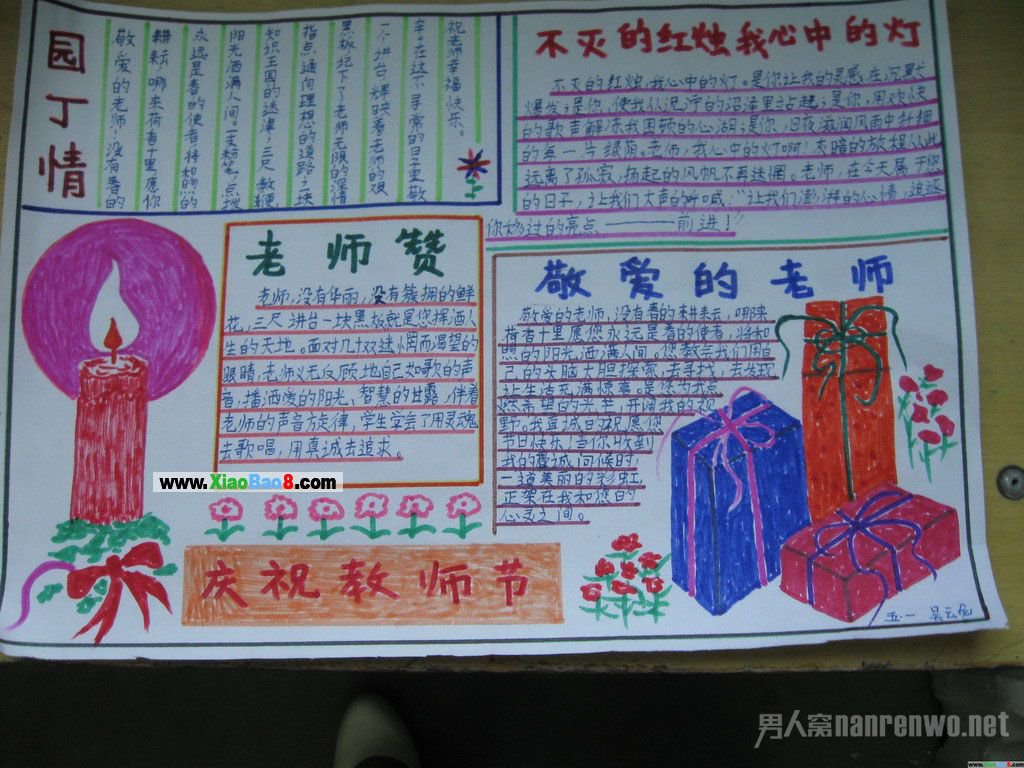 园丁情
敬爱的老师,没有春的
耕耘,哪来荷香十里愿你
永远是春的使者,将和煦的
阳光洒满人间。一支粉笔,点拨
知识王国的迷津;三尺教鞭
指点通向理想的道路;一块
黑板记下了老师无限的深情
一个讲台,辉映着老师的艰
辛。在这个寻常的日子里,敬
祝老师幸福快乐。
不灭的红烛我心中的灯
不灭的红烛,我心中的灯。是你让我的灵感在沉默
爆发;是你,使我从泥泞的沼泽里站起;是你,用欢快
的歌声解冻我困顿的心湖;是你,日夜滋润风雨中
的每一片绿荫。老师,我心中的灯啊!
远离了孤寂,扬起的风帆不再迷惘。老师,在今天属于您
的日子,让我们大声的呼喊:“让我们澎湃的心情,追逐
你燃过的亮点———前进!”
老师赞
老师,没有华丽,没有簇拥的鲜
花,三尺讲台一块黑板就是您挥洒人
生的天地。面对几十双迷惘而渴望的
眼睛,老师义无反顾地自己如歌的声
音,播洒爱的阳光、智慧的甘露,伴着
老师的声音旋律,学生学会了用灵魂
去歌唱,用真诚去追求。
敬爱的老师
敬爱的老师,没有春的耕耘,哪来
荷香十里愿您永远是春的使者,将和
煦的阳光,洒满人间。您教会我们用自
己的头脑大胆探索,去寻找,去发现
让生活充满惊喜。是您为我点
燃希望的光芒,开阔我的视
野。我真诚的祝愿您
节日快乐!当你收到
我的真诚问候时,
一道美丽的彩虹,
正架在我和您的
心灵之间。
www.XiaoBao8.com
庆祝教师节
五·一
男人窝nanrenwo.net
www.XiaoBao8.com